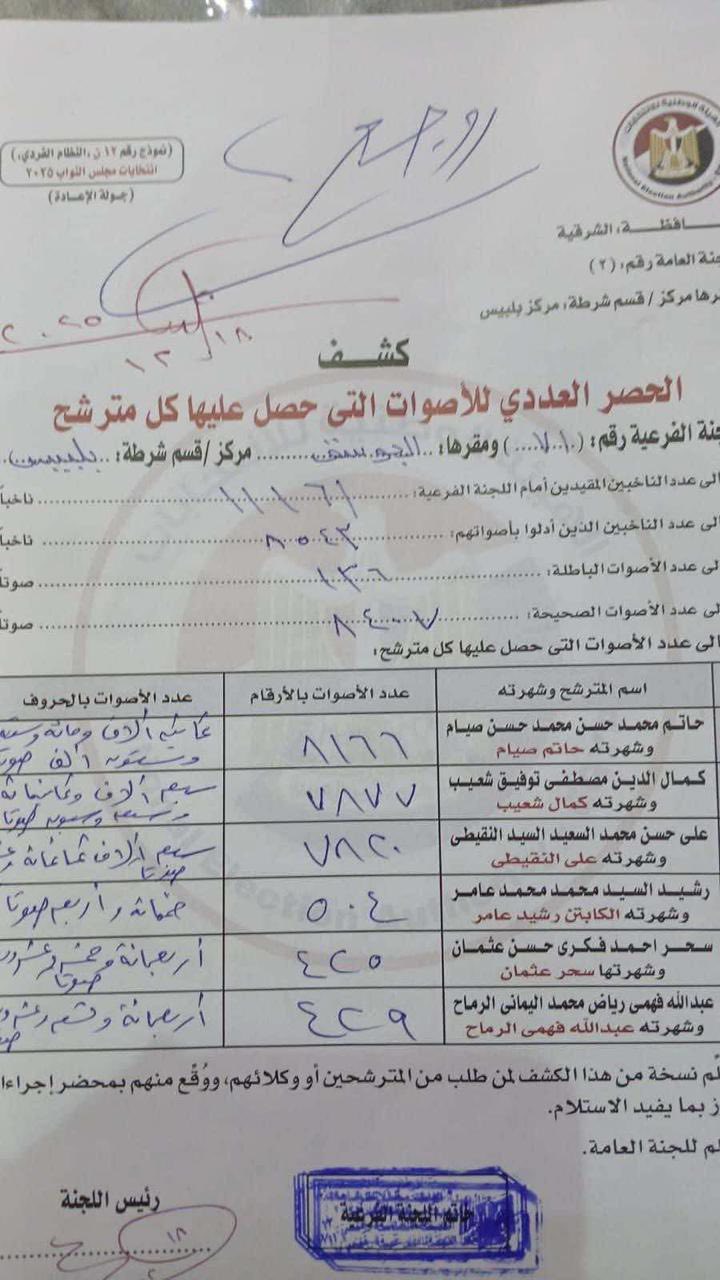 (نموذج رقم ١٢ ن، النظام الفردي،)
انتخابات مجلس النواب ٢٠٢٥
(جولة الإعادة)
National Election Authority
ـافظـــة، الشرقية
جنة العامة رقم: (٢)
رها مركز / قسم شرطة: مركز بلبيس
١٨ / ١٢ / ٢٠٢٥
كشف
الحصر العددي للأصوات التى حصل عليها كل مترشح
جنة الفرعية رقم: ( ) ومقرها: مركز /قسم شرطة: بلبيس
لى عدد الناخبين المقيدين أمام اللجنة الفرعية: ناخباً
لى عدد الناخبين الذين أدلوا بأصواتهم: ناخباً
لى عدد الأصوات الباطلة: ١٣٦ صوتاً
لى عدد الأصوات الصحيحة: صوتاً
لى عدد الأصوات التى حصل عليها كل مترشح:
اسم المترشح وشهرته عدد الأصوات بالأرقام عدد الأصوات بالحروف
حاتم محمد حسن محمد حسن صيام
وشهرته حاتم صيام ٨١٦٦ ثمانية آلاف ومائة وستة
وستون ألف صوتا
كمال الدين مصطفى توفيق شعيب
وشهرته كمال شعيب ٧٨٧٧ سبع آلاف وثمانمائة
وسبعة وسبعون صوتا
على حسن محمد السعيد السيد النقيطى
وشهرته على النقيطى ٧٨٢٠ سبع آلاف ثمانمائة
صوتا
رشيد السيد محمد محمد عامر
وشهرته الكابتن رشيد عامر ٥٠٤ خمسمائة وأربع صوتا
سحر احمد فكرى حسن عثمان
وشهرتها سحر عثمان ٤٢٥ أربعمائة وخمس وعشرون
صوتا
عبدالله فهمى رياض محمد اليمانى الرماح
وشهرته عبدالله فهمى الرماح ٤٢٩ أربعمائة وتسع
لّم نسخة من هذا الكشف لمن طلب من المترشحين أو وكلائهم، ووُقّع منهم بمحضر إجراءا
ز بما يفيد الاستلام.
لم للجنة العامة.
رئيس اللجنة
خاتم اللجنة الفرعية
١٨